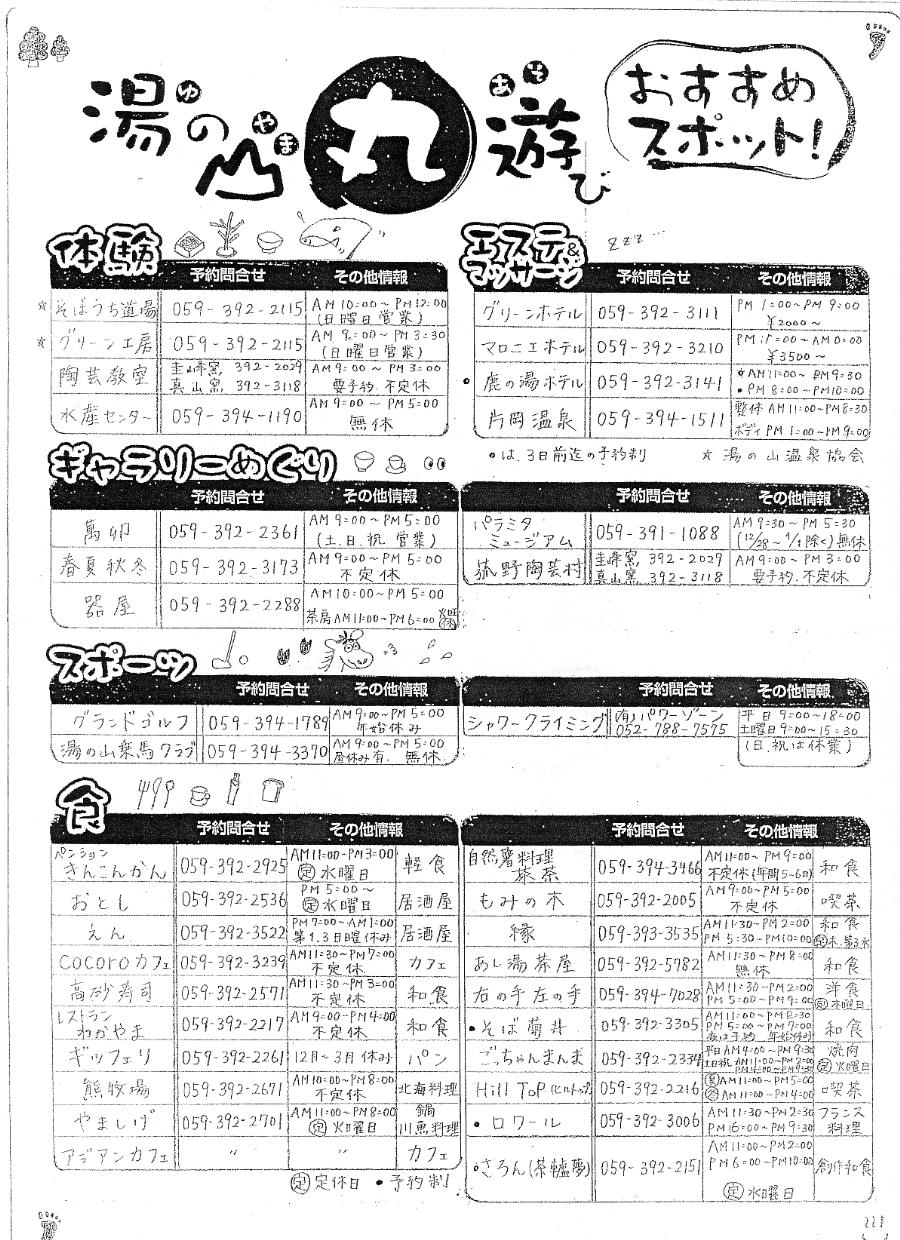 湯の山 丸 遊び
ゆ
やま
あそ
おすすめ
スポット!
体験
予約問合せ その他情報
☆ そばうち道場 059-392-2115 AM 10:00〜PM 12:00
(日曜日営業)
☆ グリーン工房 059-392-2115 AM 9:00〜PM 3:30
(日曜日営業)
陶芸教室 圭峰窯 392-2029 AM 9:00〜PM 3:00
真山窯 392-3118 要予約、不定休
水産センター 059-394-1190 AM 9:00〜PM 5:00
無休
エステ&
マッサージ
zzz...
予約問合せ その他情報
グリーンホテル 059-392-3111 PM 1:00〜PM 9:00
¥2000〜
マロニエホテル 059-392-3210 〜AM 0:00
¥3500〜
• 鹿の湯ホテル 059-392-3141 ☆AM 11:00〜PM 9:30
•PM 8:00〜PM 10:00
片岡温泉 059-394-1511 整体 AM 11:00〜PM 8:30
ボディ PM 1:00〜PM 9:00
•は、3日前迄の予約制 ☆ 湯の山温泉協会
ギャラリーめぐり
予約問合せ その他情報
萬卯 059-392-2361 AM 9:00〜PM 5:00
(土、日、祝 営業)
春夏秋冬 059-392-3173 AM 9:00〜PM 5:00
不定休
器屋 059-392-2288 AM 10:00〜PM 5:00
茶房 AM 11:00〜PM 6:00
予約問合せ その他情報
パラミタ
ミュージアム 059-391-1088 AM 9:30〜PM 5:30
(12/28〜1/1除く)無休
菰野陶芸村 圭峰窯 392-2029 AM 9:00〜PM 3:00
真山窯 392-3118 要予約、不定休
スポーツ
予約問合せ その他情報
グランドゴルフ 059-394-1789 AM 9:00〜PM 5:00
年始休み
湯の山乗馬クラブ 059-394-3370 AM 9:00〜PM 5:00
昼休み有、無休
予約問合せ その他情報
シャワークライミング (有)パワーゾーン 平日 9:00〜18:00
052-788-7575 土曜日 9:00〜15:30
(日、祝は休業)
食
予約問合せ その他情報
ペンション
きんこんかん 059-392-2925 AM 11:00-PM 3:00 軽食
定 水曜日
おとし 059-392-2536 PM 5:00〜 居酒屋
定 水曜日
えん 059-392-3522 PM 7:00〜AM 1:00 居酒屋
第1.3日曜休み
cocoroカフェ 059-392-3239 AM 11:30〜PM 7:00 カフェ
不定休
高砂寿司 059-392-2571 AM 11:30〜PM 3:00 和食
不定休
レストラン
わかやま 059-392-2217 AM 9:00-PM 4:00 和食
不定休
ギッフェリ 059-392-2261 12月〜3月 休み パン
熊牧場 059-392-2671 AM 10:00〜PM 8:00 北海料理
不定休
やましげ 059-392-2701 AM 11:00〜PM 8:00 鍋
定 火曜日 川魚料理
アジアンカフェ 〃 〃 カフェ
定 定休日 •予約制
予約問合せ その他情報
自然薯料理
茶茶 059-394-3466 AM 11:00〜PM 9:00 和食
不定休(年間5〜6日)
もみの木 059-392-2005 AM 9:00〜PM 5:00 喫茶
不定休
縁 059-393-3535 AM 11:30〜PM 2:00 和食
PM 5:30-PM 10:00 定 木、第3水
あし湯茶屋 059-392-5782 AM 11:30〜PM 8:00 和食
無休
右の手左の手 059-394-7028 AM 11:30-PM 2:00 洋食
PM 5:00〜PM 9:00 定 木曜日
•そば菊井 059-392-3305 AM 11:00〜PM 2:30 和食
PM 5:00〜PM 7:00
夜は予約 年始休み
ごっちゃんまんま 059-392-2334 焼肉
定 火曜日
Hill Top(ヒルトップ) 059-392-2216 夏AM 11:00〜PM 5:00 喫茶
冬AM 11:00〜PM 4:00
•ロワール 059-392-3006 AM 11:30〜PM 2:30 フランス
PM 16:00〜PM 9:30 料理
•さろん(茶轤夢) 059-392-2151 AM 11:00〜PM 2:00
PM 6:00〜PM 10:00 創作和食
定 水曜日